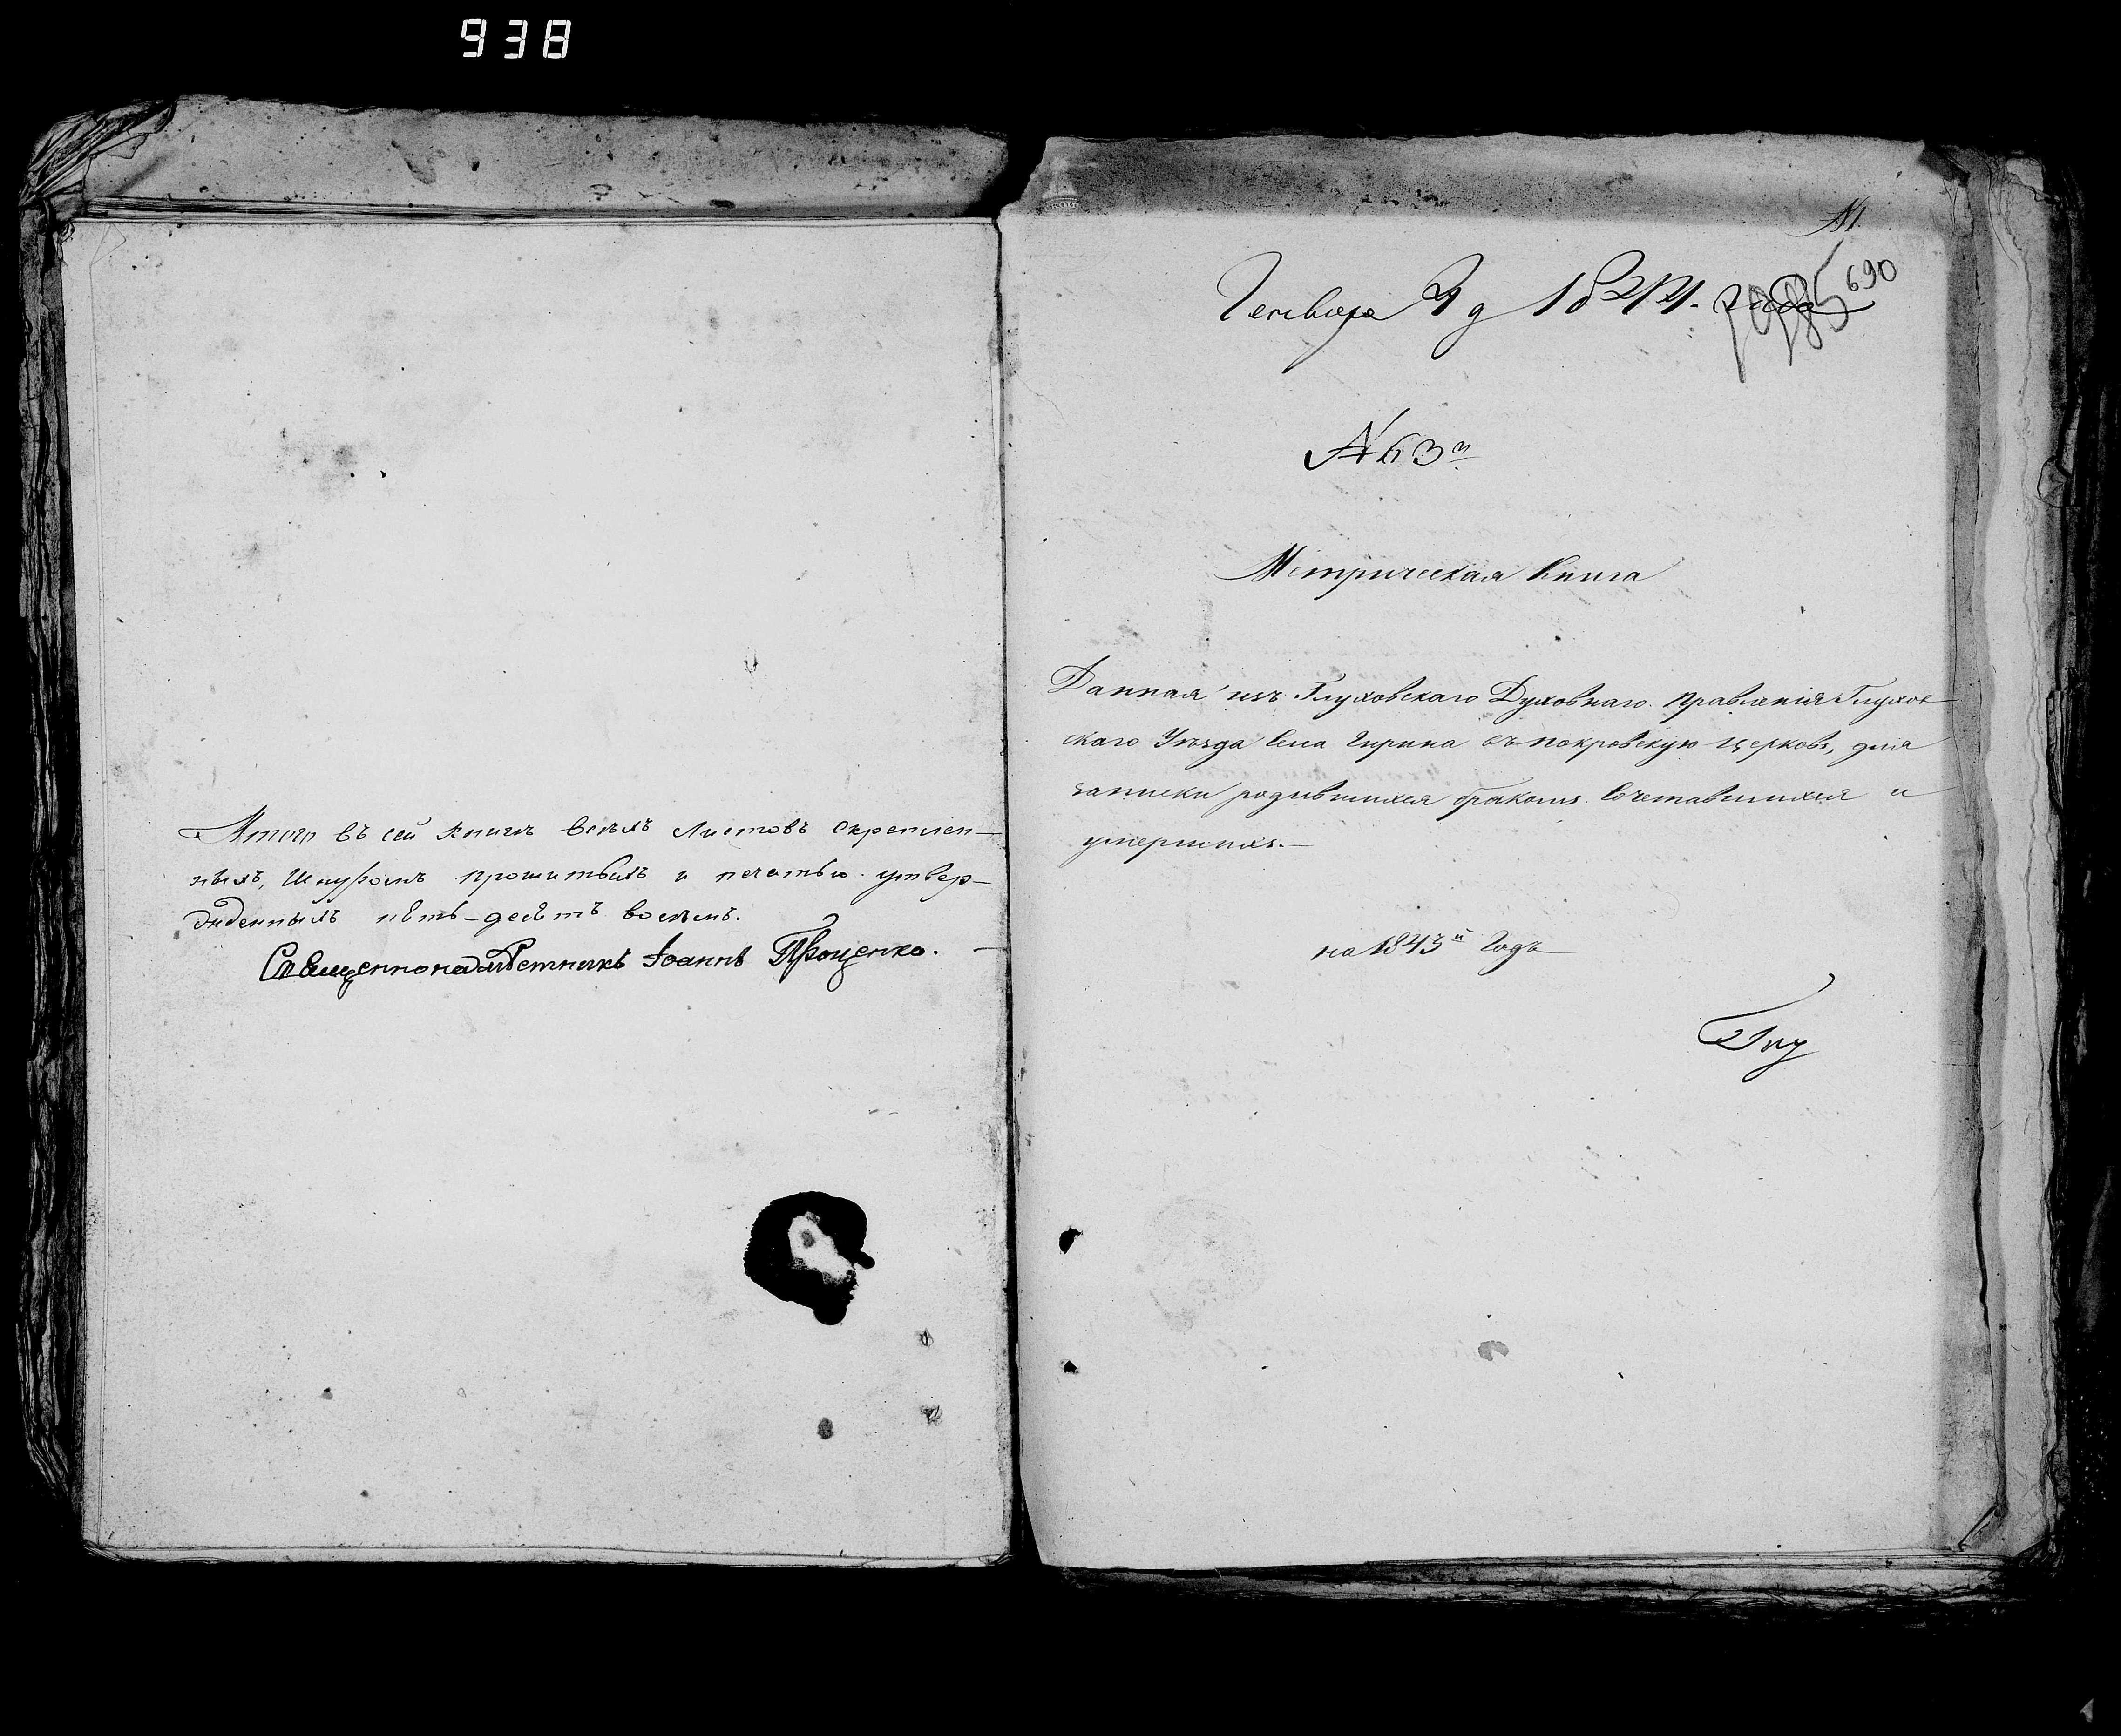 938
Итого въ сей книгѣ всѣхъ листовъ скреплен-
ныхъ, шнуромъ прошитыхъ и печатью утвер-
жденныхъ пять-десятъ восемъ.
Іоаннъ Прощенко.
690
Генваря 4 д 1844. года
№ 63й
Метрическая Книга
Данная изъ Глуховскаго Духовнаго правленія Глухов
скаго Уѣзда Села Гирина въ покровскую церковь, для
записки родившихся бракомъ сочетавшихся и
умершихъ.—
на 1843й Годъ
Глу